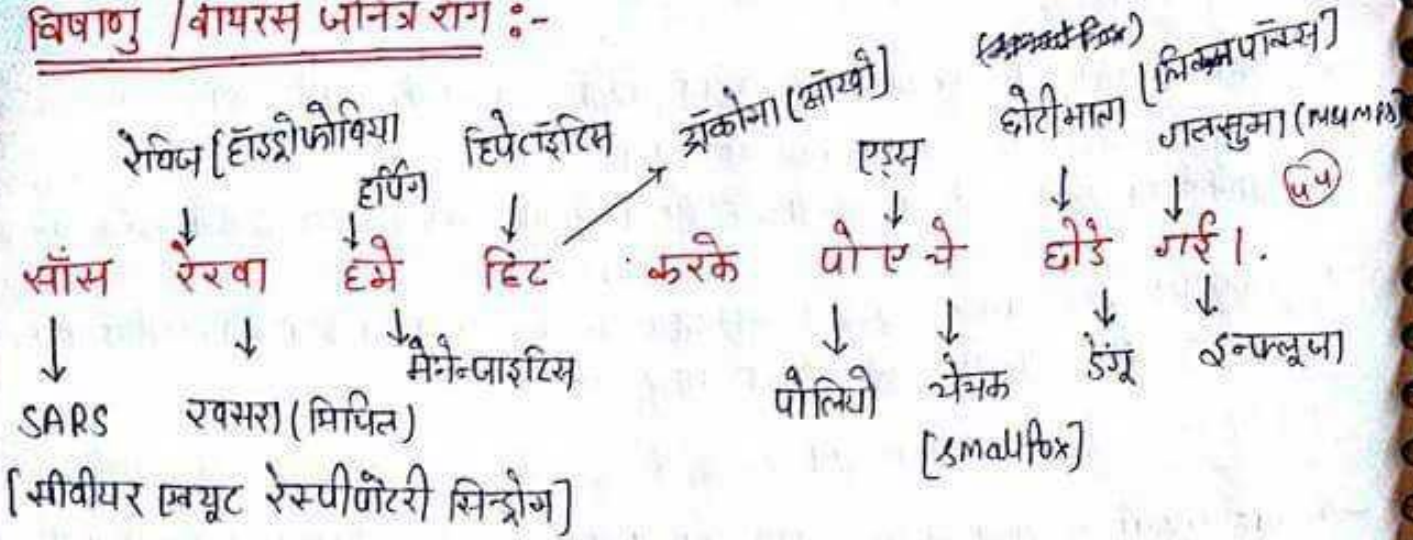 विषाणु / वायरस जनित्र रोग :-
रेबिज [हॉइड्रोफोबिया
हर्पिग
हिपेटाइटिस
ट्रॅकोमा (आँखो]
एड्स
छोटीमाता [चिकनपॉक्स]
गलसुआ (mumps)
साँस रेखा हमे हिट करके पोए चे छोडे गई।.
SARS
खसरा (मिजिल)
मेनेन्जाइटिस
पोलियो
चेचक
[smallpox]
डेंगू
इन्फ्लूजा
[सीवीयर एक्यूट रेस्पीणेटरी सिन्ड्रोम]